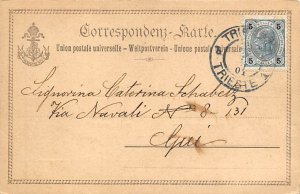 Correspondenz-Karte.
Union postale universelle — Weltpostverein — Unione postale
TRIESTE
5 5
5 5
TRIESTE
Signorina Caterina Schabelz
Via Navali N° 8 131
Qui